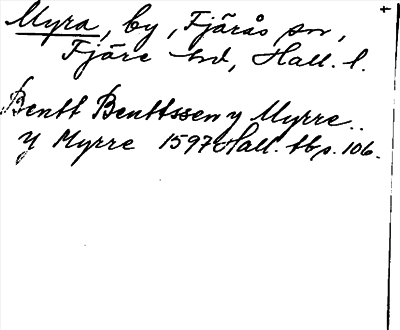 Myra, by, Fjärås sn,
Fjäre hd, Hall. l.
Bentt Benttssen y Myrre..
y Myrre 1597 Hall. tb p. 106.